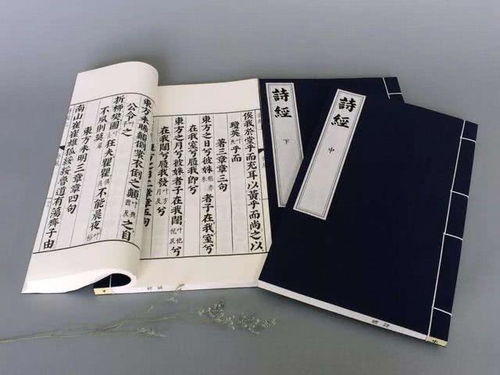 俟我於堂乎而充耳以黃乎而尚之以
瓊英乎而
著三章章三句
東方之日兮彼姝者子在我室兮
在我室兮履我即兮
東方之月兮彼姝者子在我闥兮
在我闥兮履我發兮
東方之日二章章五句
東方未晞顛倒裳衣倒之顛之自
公令之
折柳樊圃狂夫瞿瞿不能晨夜
不夙則莫
東方未明三章章四句
南山崔崔雄狐綏綏魯道有蕩齊子由
詩經 下
詩經 中